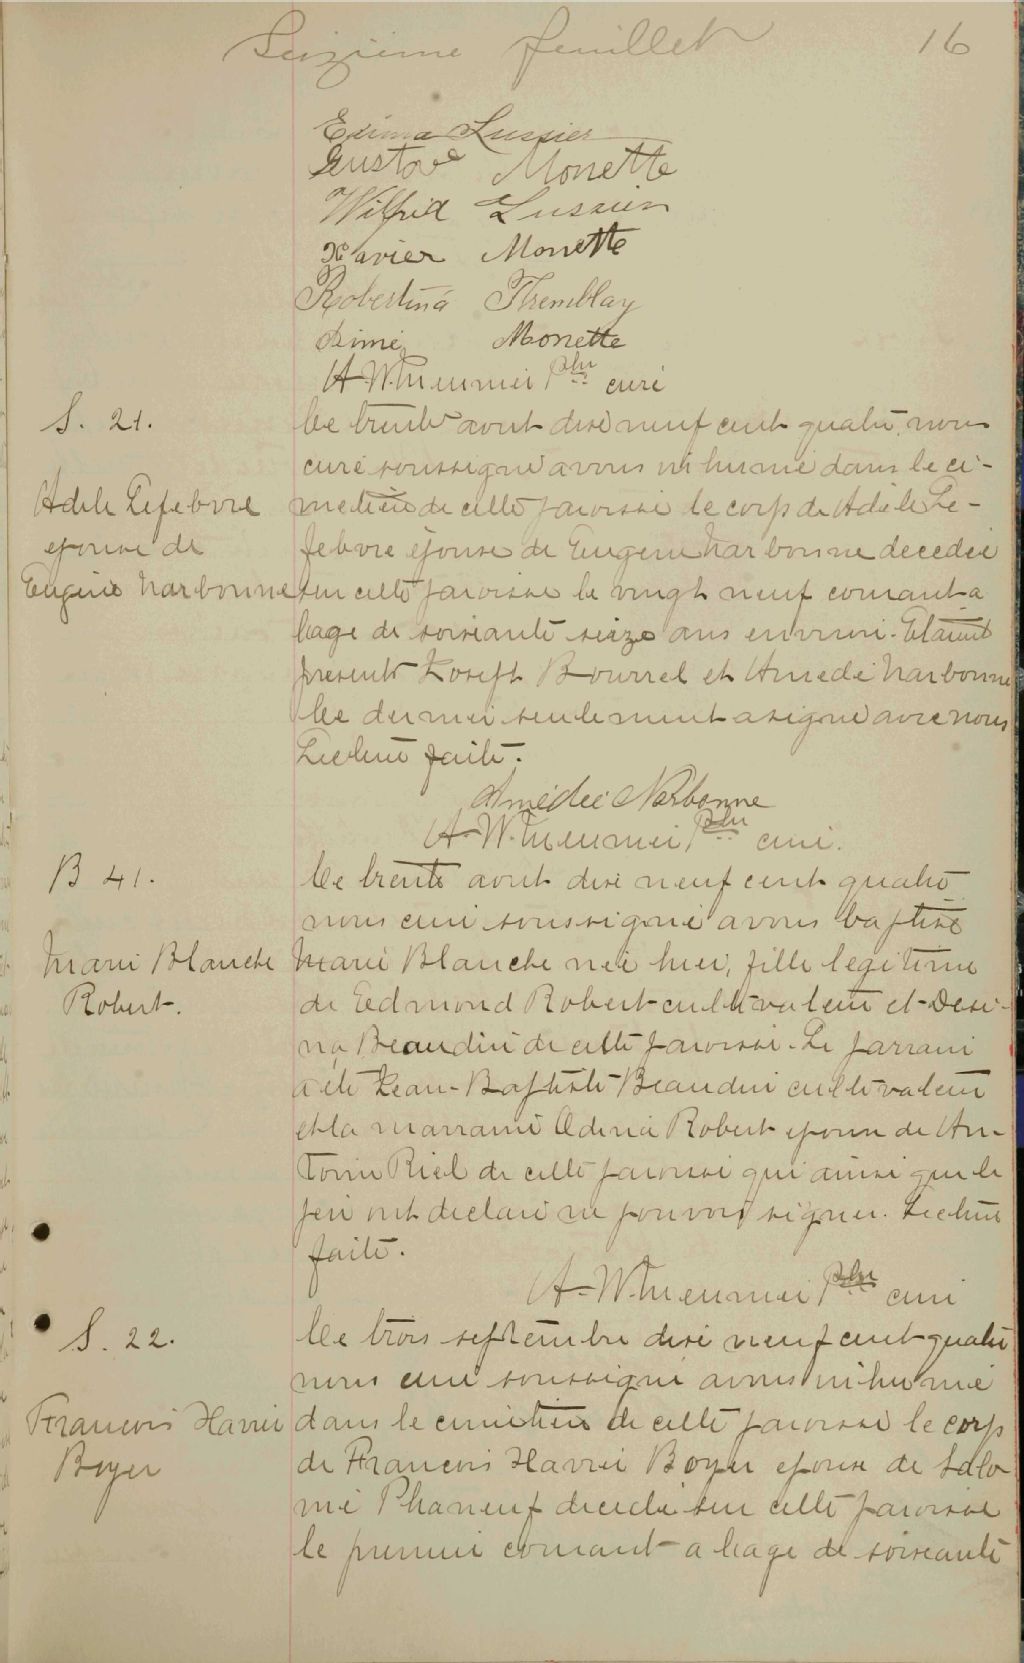 Seizième feuillet 16
Exima Lussier
Gustave Monette
Wilfrid Lussier
Xavier Monette
Robertina Thremblay
Monette
Ptre curé
S. 21.
Adele Lefebvre
epouse de
Eugène Narbonne
Le trente aout dixe neuf cent quatre, nous
curé soussigné avons inhumé dans le ci-
metière de cette paroisse le corps de Adele Le-
febvre épouse de Eugene Narbonne decedée
en cette paroisse le vingt neuf courant a
l'age de soixante seize ans environ. Etaient
presents Joseph Bourrel et Amedé Narbonne
Ce dernier seulement a signé avec nous
Lecture faite.
Amédée Narbonne
Ptre curé.
B 41.
Marie Blanche
Robert.
Le trente aout dixe neuf cent quatre
nous curé soussigné avons baptisé
Marie Blanche née hier, fille legitime
de Edmond Robert cultivateur et Desi-
na Beaudin de cette paroisse. Le parrain
a été Jean-Baptiste Beaudin cultivateur
et la marraine Odena Robert epouse de An-
tonin Riel de cette paroisse qui ainsi que le
père ont declaré ne pouvoir signer. Lecture
faite.
Ptre curé
S. 22.
Francois Xavier
Boyer
Le trois septembre dixe neuf cent quatre
nous curé soussigné avons inhumé
dans le cimetière de cette paroisse le corps
de Francois Xavier Boyer epoux de Salo-
mé Phaneuf decedé en cette paroisse
le premier courant a l'age de soixante